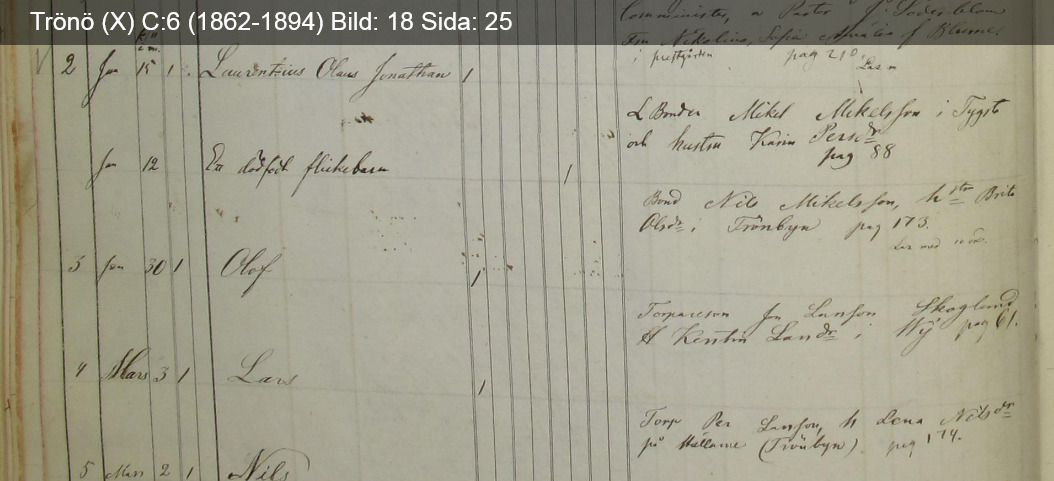 Trönö (X) C:6 (1862-1894) Bild: 18 Sida: 25
Comminister, Pastor J. Söderblom
Fru Nikolina, Sofia af Blume
i prestgården pag 210.
2 Jan 15 1 Laurentsius Olaus Jonathan 1
Bonden Mikel Mikelsson i Tygst
och hustru Karin Persdr
pag 88
Jan 12 Ett dödfödt flickebarn 1
Bond Nils Mikelsson, hstru Brita
Olsdr i Trönbyn pag 173.
3 Jan 30 1 Olof 1
Torpareson Jon Larsson Skoglund
H Kerstin Larsdr i Wij pag 61.
4 Mars 3 1 Lars 1
Torp Per Larsson, h Lena Nilsdr
på (Trönbyn). pag 174.
5 Mars 2 1 Nils